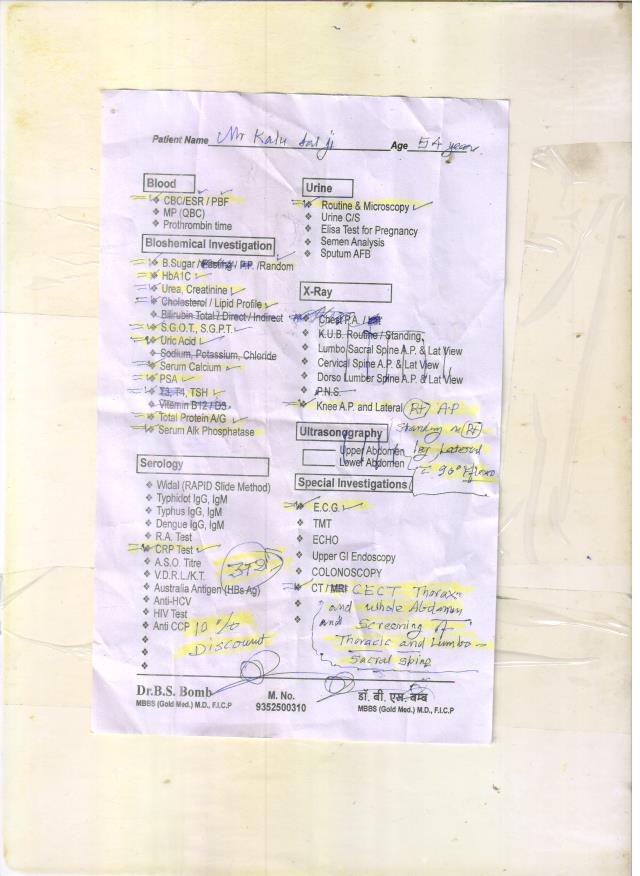 Patient Name Mr Kalu Lal ji Age 54 year
Blood
CBC/ESR / PBF
MP (QBC)
Prothrombin time
Bioshemical Investigation
B.Sugar / Fasting / P.P. /Random
HbA1C
Urea, Creatinine
Cholesterol / Lipid Profile
Bilirubin Total / Direct / Indirect
S.G.O.T., S.G.P.T.
Uric Acid
Sodium, Potassium, Chloride
Serum Calcium
PSA
T3, T4, TSH
Vitamin B12 / D3
Total Protein A/G
Serum Alk Phosphatase
Serology
Widal (RAPID Slide Method)
Typhidot IgG, IgM
Typhus IgG, IgM
Dengue IgG, IgM
R.A. Test
CRP Test
A.S.O. Titre
V.D.R.L./K.T.
Australia Antigen (HBs Ag)
Anti-HCV
HIV Test
Anti CCP 10%
Discount
Urine
Routine & Microscopy
Urine C/S
Elisa Test for Pregnancy
Semen Analysis
Sputum AFB
X-Ray
Chest P.A. /
K.U.B. Routine / Standing
Lumbo Sacral Spine A.P. & Lat View
Cervical Spine A.P. & Lat View
Dorso Lumber Spine A.P. & Lat View
P.N.S.
Knee A.P. and Lateral Rt A.P
Standing Rt
Lateral
90°
Ultrasonography
Upper Abdomen
Lower Abdomen
Special Investigations
E.C.G.
TMT
ECHO
Upper GI Endoscopy
COLONOSCOPY
CT / MRI CECT Thorax
and whole Abdomen
and Screening of
Thoracic and Lumbo-
Sacral spine
Dr.B.S. Bomb
MBBS (Gold Med.) M.D., F.I.C.P
M. No.
9352500310
डॉ. बी. एस. बम्ब
MBBS (Gold Med.) M.D., F.I.C.P